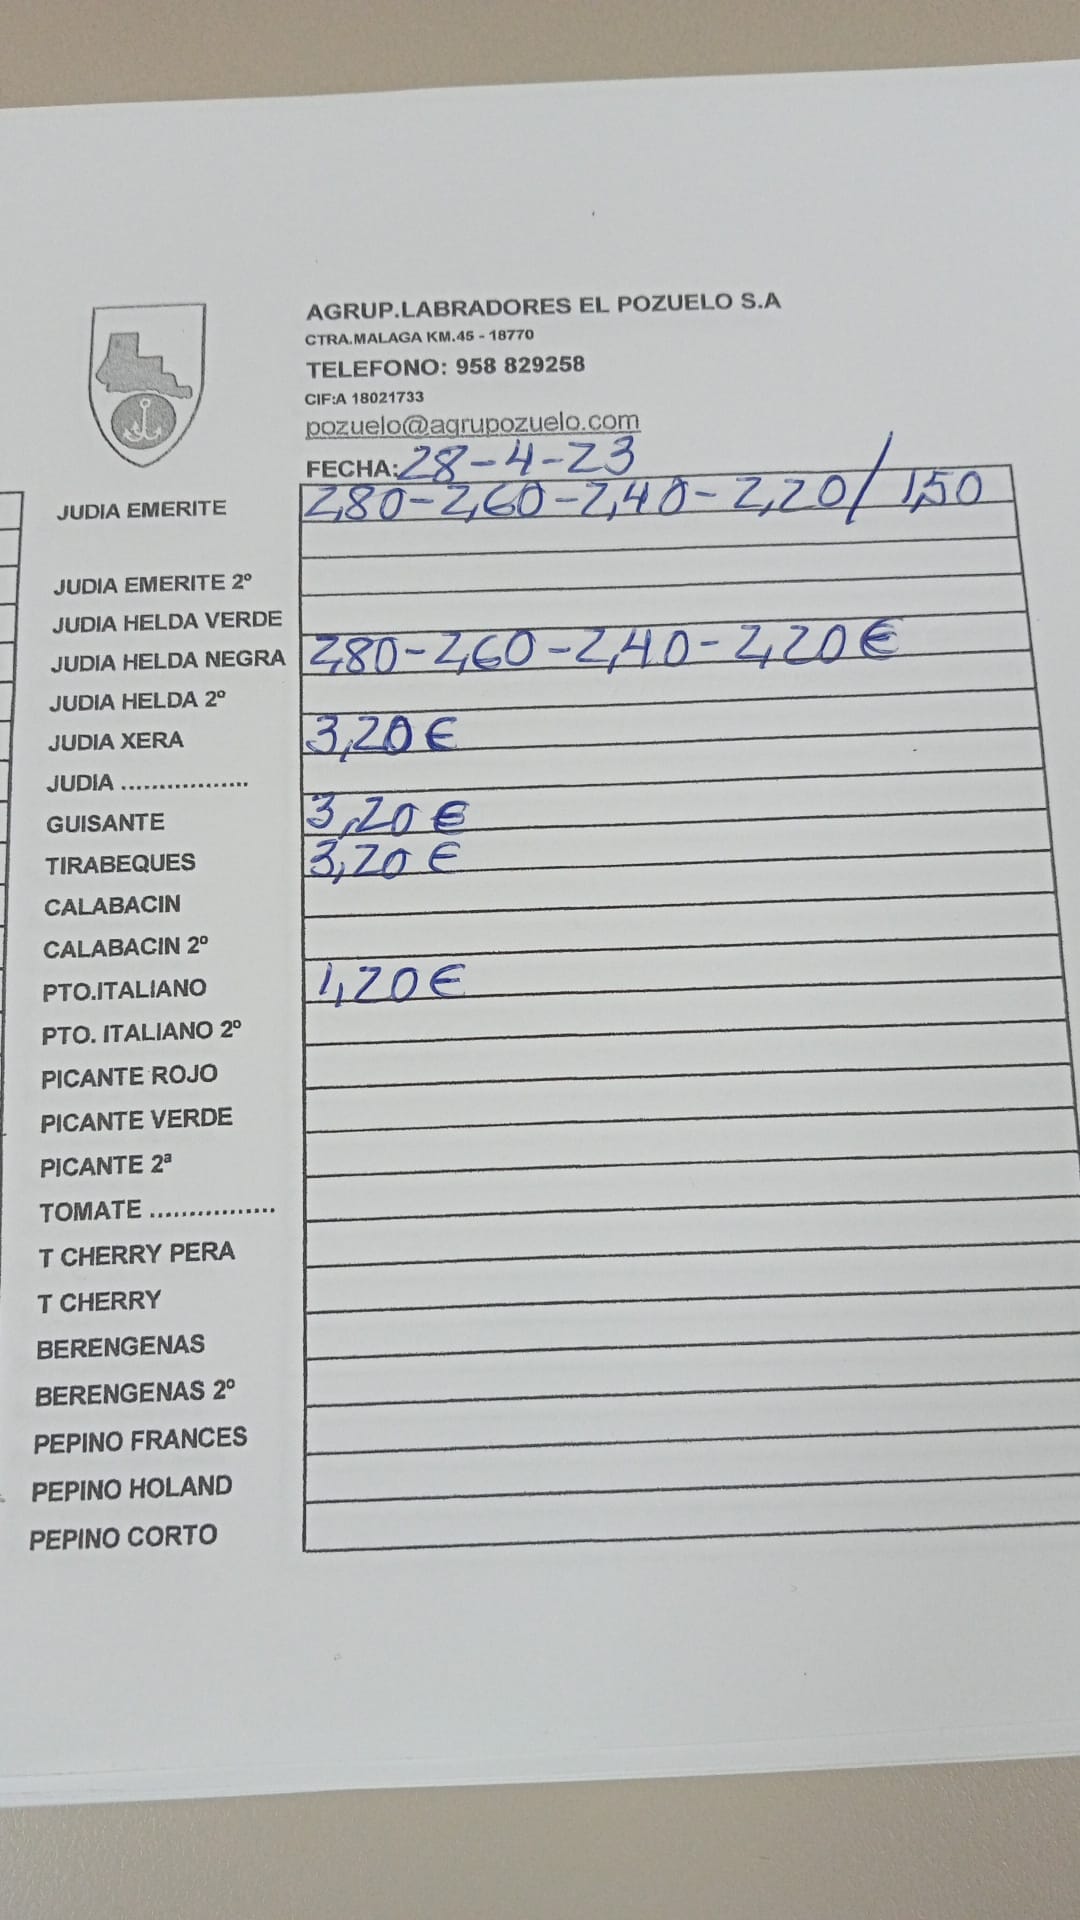 AGRUP.LABRADORES EL POZUELO S.A
CTRA.MALAGA KM.45 - 18770
TELEFONO: 958 829258
CIF:A 18021733
pozuelo@agrupozuelo.com
FECHA: 28-4-23
JUDIA EMERITE 2,80-2,60-2,40-2,20/1,50
JUDIA EMERITE 2º
JUDIA HELDA VERDE
JUDIA HELDA NEGRA 2,80-2,60-2,40-2,20€
JUDIA HELDA 2º
JUDIA XERA 3,20€
JUDIA ..................
GUISANTE 3,20€
TIRABEQUES 3,20€
CALABACIN
CALABACIN 2º
PTO.ITALIANO 1,20€
PTO. ITALIANO 2º
PICANTE ROJO
PICANTE VERDE
PICANTE 2ª
TOMATE ................
T CHERRY PERA
T CHERRY
BERENGENAS
BERENGENAS 2º
PEPINO FRANCES
PEPINO HOLAND
PEPINO CORTO